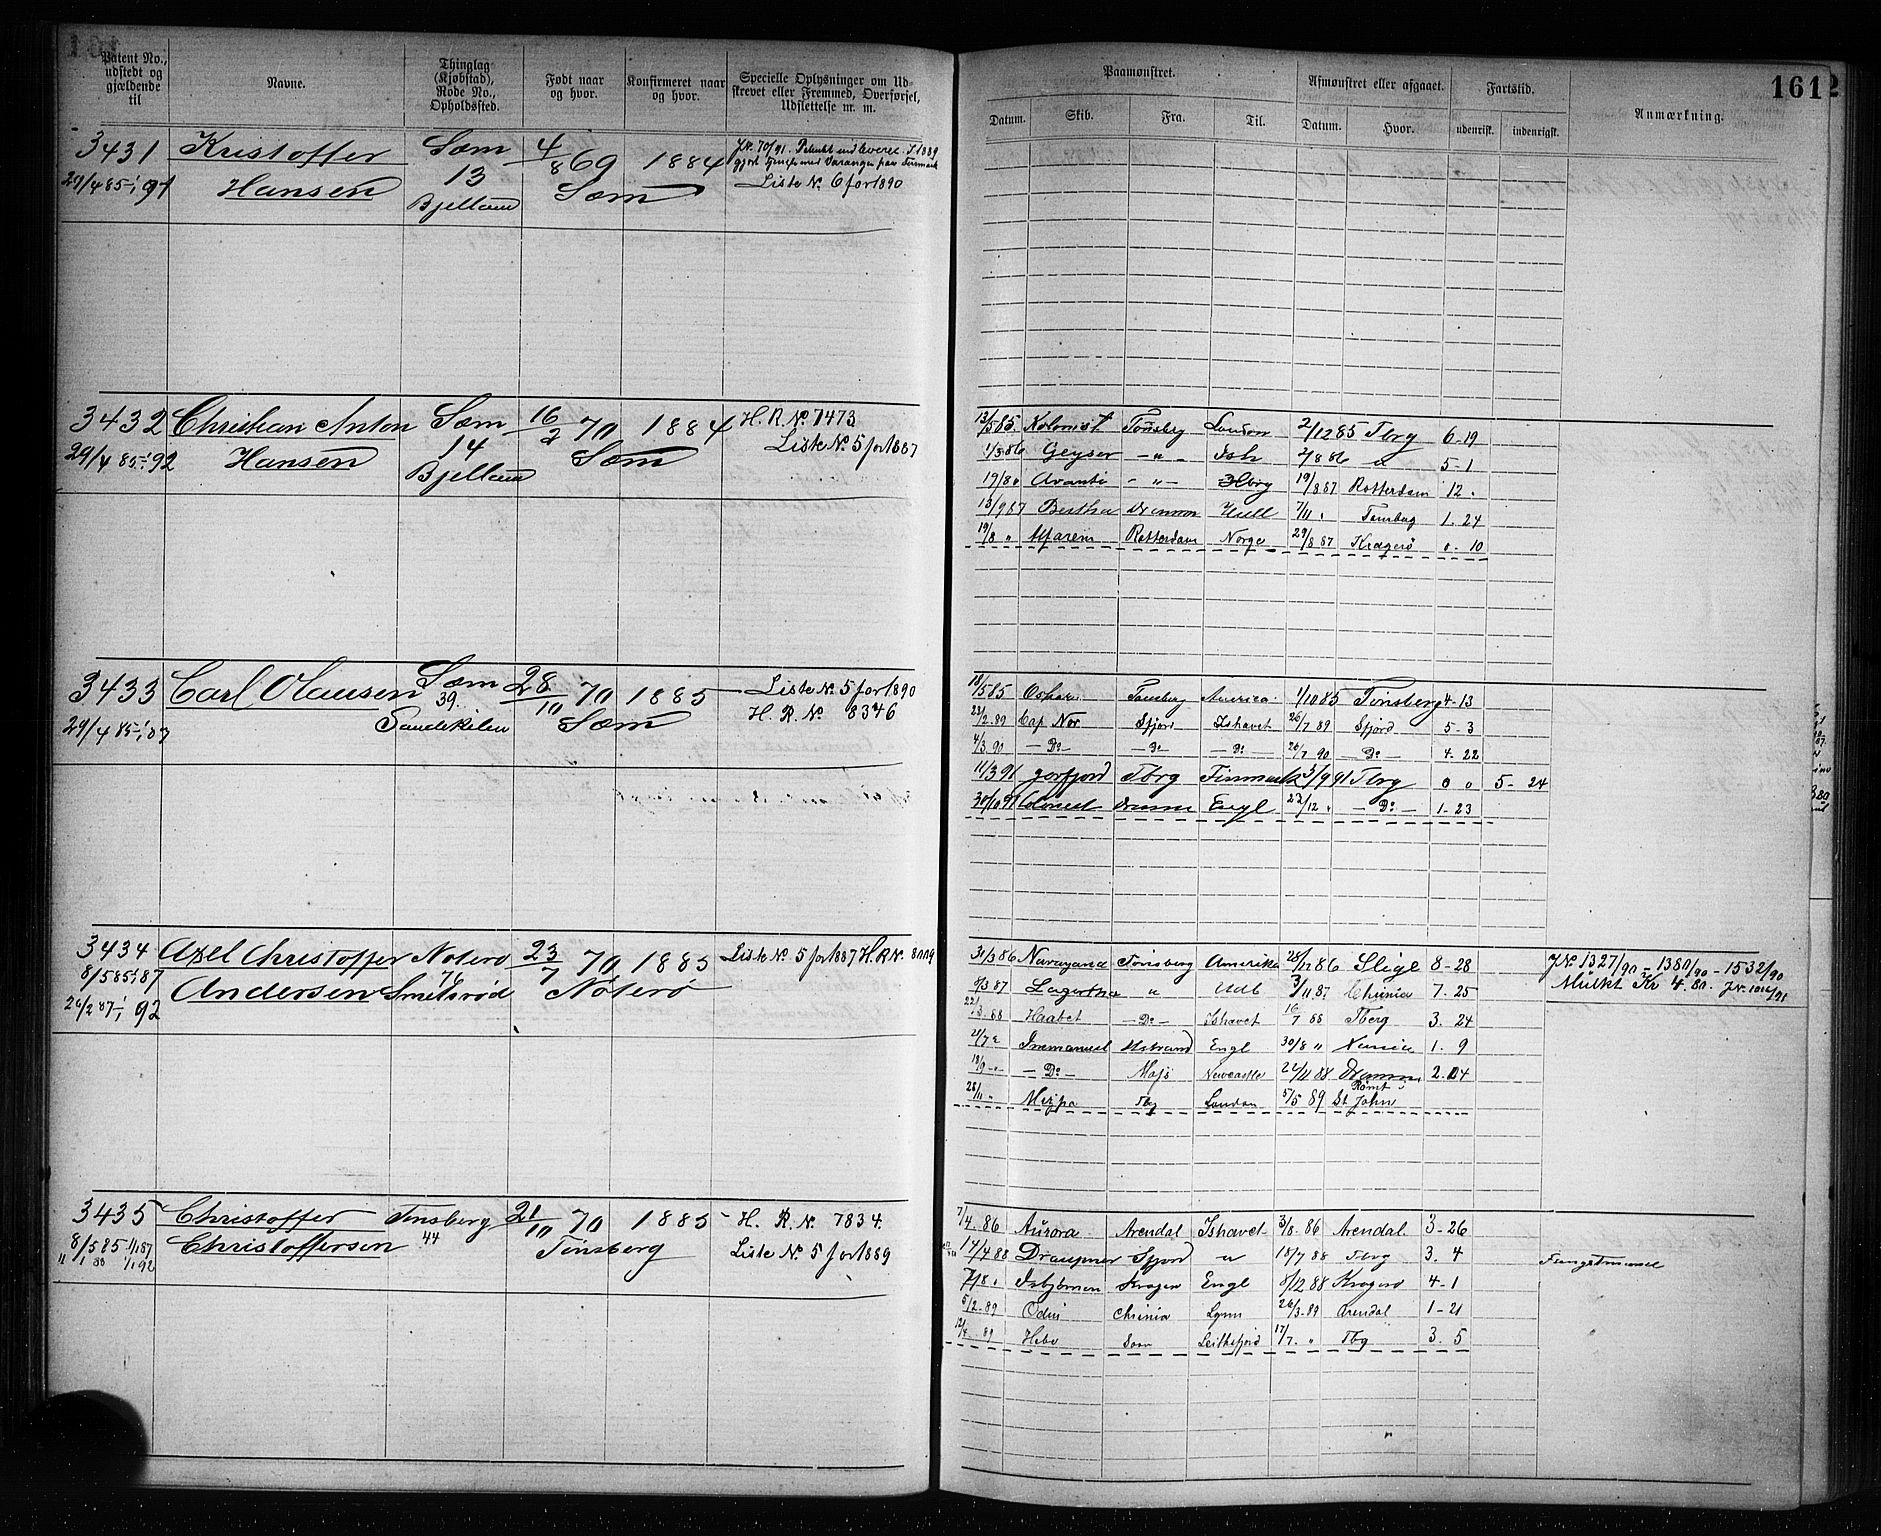 161
Patent No., udstedt og gjældende til
Navne.
Thinglag (Kjøbstad), Rode No., Opholdssted.
Født naar og hvor.
Konfirmeret naar og hvor.
Specielle Oplysninger om Udskrevet eller Fremmed, Overførsel, Udslettelse m. m.
Paamønstret.
Afmønstret eller afgaaet.
Fartstid.
Anmærkning.
Datum. Skib. Fra. Til. Datum. Hvor. udenrisk. indenrigsk.
3431 Kristoffer Sæm 4/8 69 1884
29/4 85 1/1 91 Hansen 13 Sæm Liste No 6 for 1890
Bjelland
3432 Christian Anton Sæm 16/2 70 1884 H.R.No 7473
29/4 85 1/1 92 Hansen 14 Sæm Liste No 5 for 1887
Bjelland
13/5 85 Kolonist Tønsberg London 2/12 85 Tbrg 6-19
Geysor -"- Ish 2/8 86 " 5-1
Avanti -"- Hbrg 19/8 87 Rotterdam 12
13/9 87 Bertha Drammen Hull 7/11 1.24
19/8 " Maren Rotterdam Norge 29/8 87 Kragerø 0-10
3433 Carl Olausen Sæm 28/10 70 1885 Liste No 5 for 1890
29/4 85 1/1 87 39. Sæm H.R.No 8346
Sandekilen
18/5 85 Tønsberg America 1/10 85 Tønsberg 4-13
23/2 89 Cap Nor Sfjord Ishavet 26/7 89 Sfjord 5-3
4/3 90 -Do- -Do- -Do- 26/7 90 -Do- 4-22
11/3 91 Jorfjord Tbrg Finmark 3/9 91 Tbrg 0 0 5-24
30/10 91 Colonist Dramm Engl 22/12 -Do- 1-23
3434 Axel Christoffer Noterø 23/7 70 1885 Liste No 5 for 1887 H.R.No
8/5 85 1/1 87 Andersen 76 Smidsrød Nøterø
26/2 87 1/1 92
31/3 86 Navayana Tønsberg Amerika 28/12 86 Slige 8-28 J.No 1327/90 - 1380/90 - 1532/90
Lagertha " Udl 3/11 87 Chrinia 7.25 Mulkt Kr 4.80.
Haabet -Do- Ishavet 16/7 88 Tberg 3.24
Immanuel Ustrand Engl 30/8 " 1.9
-Do- Newcastle 24/11 88 Dramm
28/11 " Tbg London 5/5 89 Rømt St John
3435 Christoffer Tønsberg 21/10 70 1885 H.R.No 7834.
8/5 85 1/1 87 Christoffersen 44 Tønsberg Liste No 5 for 1889
1/1 92
7/4 86 Aurora Arendal Ishavet 3/8 86 Arendal 3-26
14/4 88 Draupner Sfjord " 18/7 88 Tbrg 3.4
7/8 Isbjørnen Kragerø Engl 8/12 88 Kragerø 4-1
5/2 89 Odin Chrinia Lynn 26/3 89 Arendal 1-21
89 Hebe 17/7 " Tbg 3.5